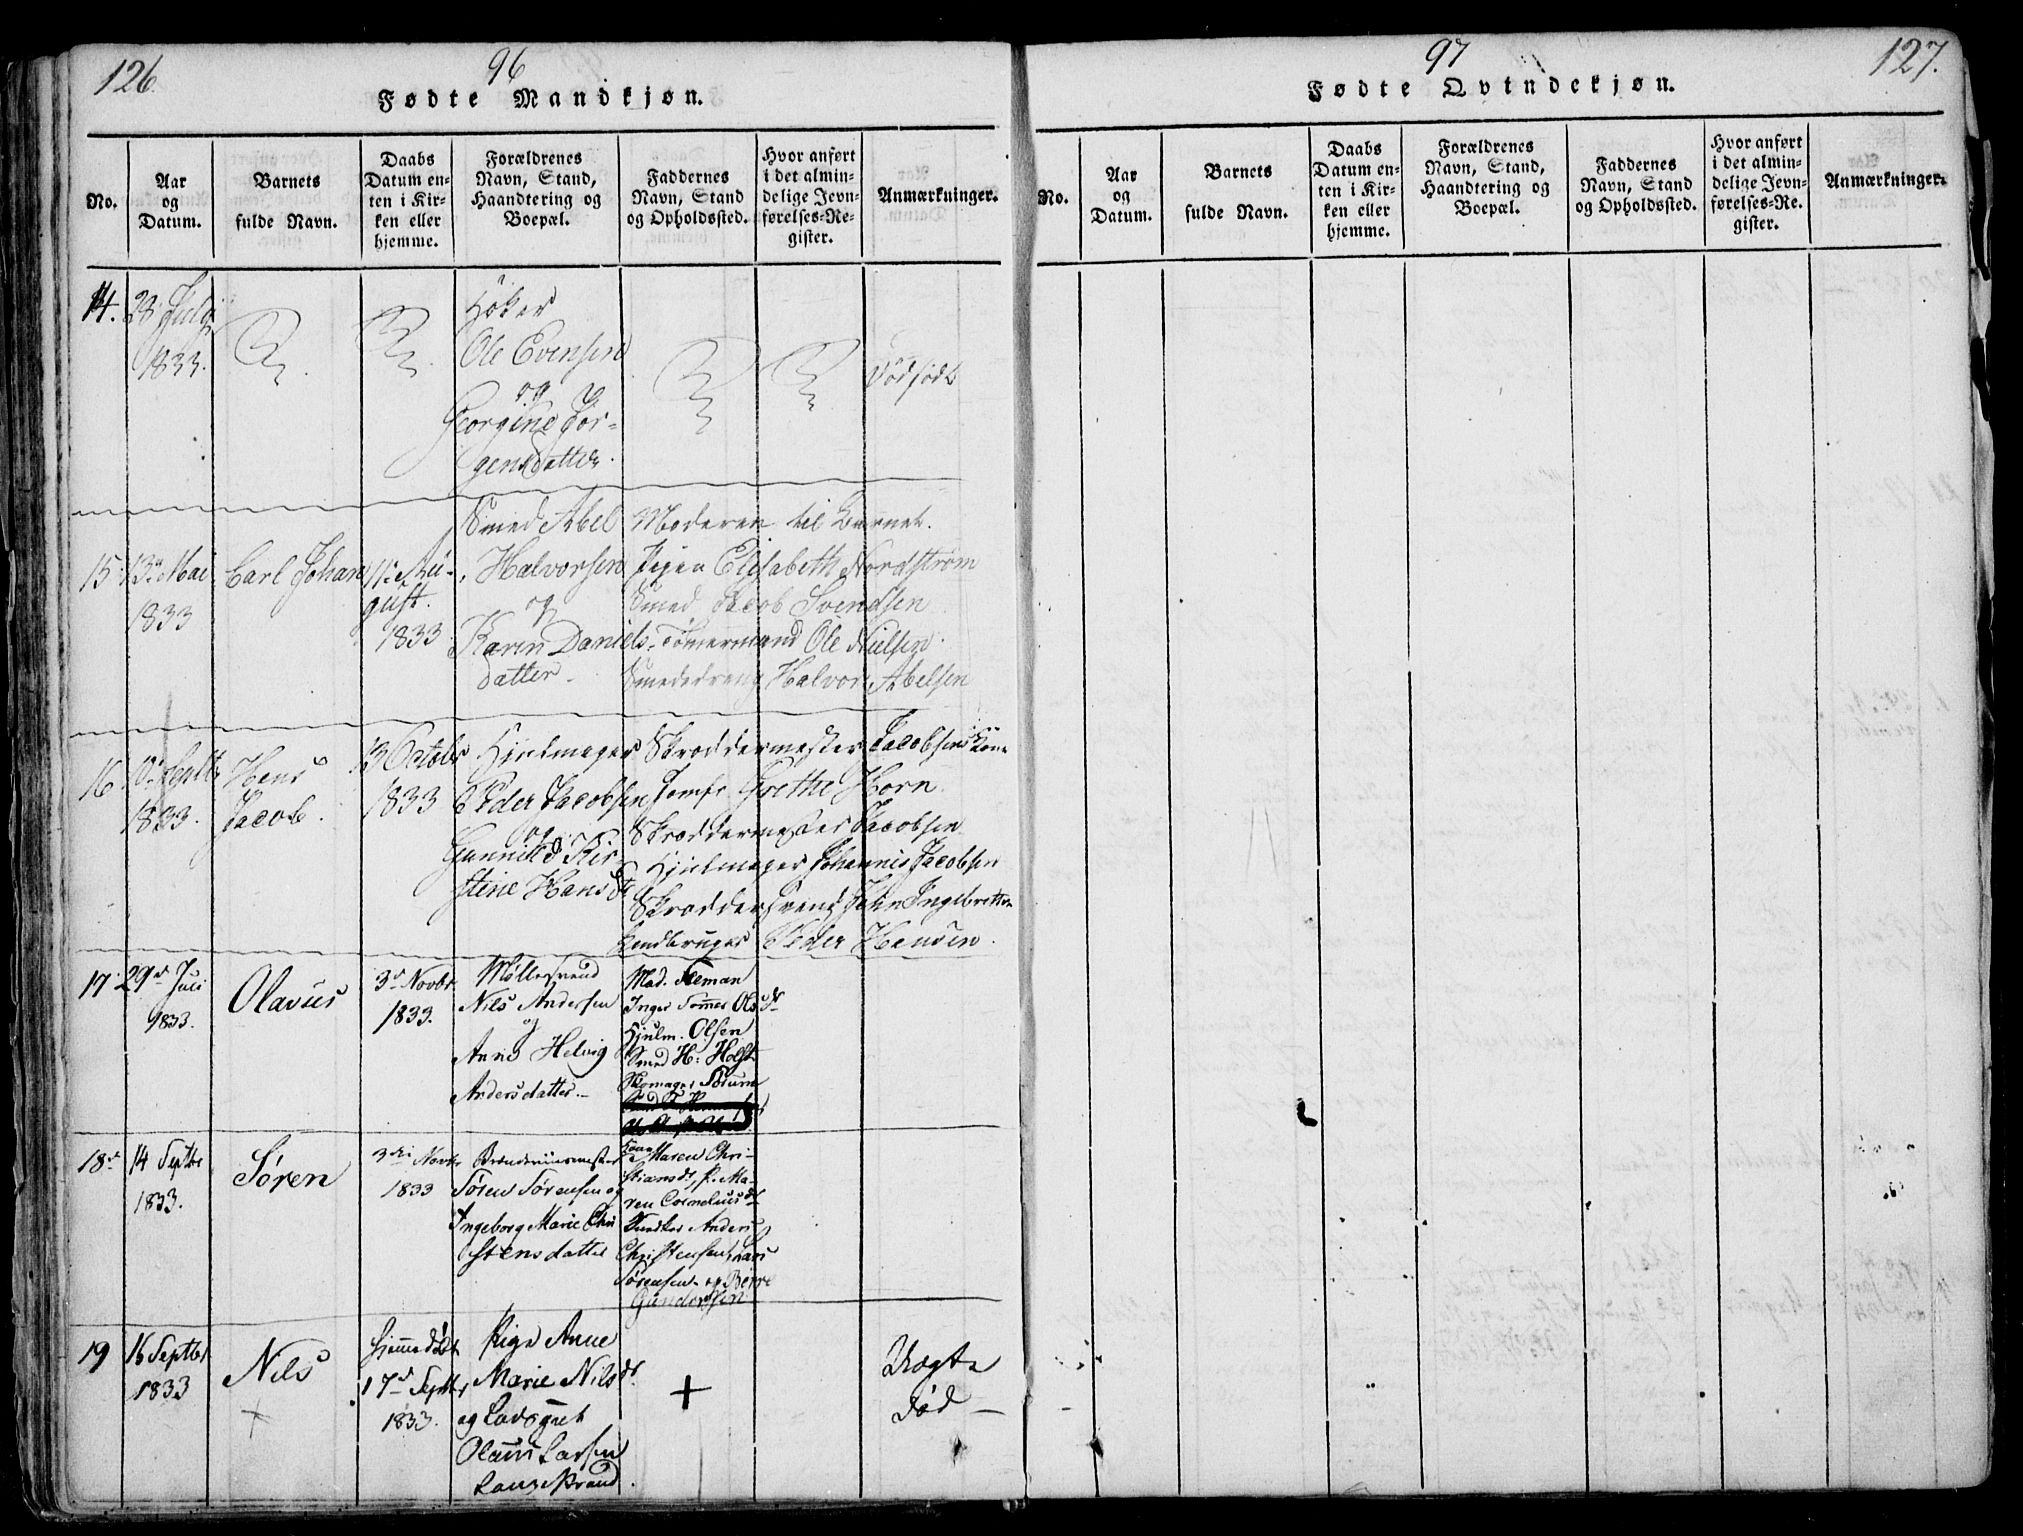 126.
96
Fødte Mandkjøn.
No.
Aar
og
Datum.
Barnets
fulde Navn.
Daabs
Datum en-
ten i Kir-
ken eller
hjemme.
Forældrenes
Navn, Stand,
Haandtering og
Boepæl.
Faddernes
Navn, Stand
og Opholdssted.
Hvor anført
i det almin-
delige Jevn-
førelses-Re-
gister.
Anmærkninger.
14.
28 Julij
1833.
Høker
Ole Evensen
og
Georgine Jør-
gensdatter.
Dødfødt
15
13de Mai
1833
Carl Johan
11te Au-
gust.
1833
Smed Abel
Halvorsen
og
Karen Daniels-
datter.
Moderen til Barnet.
Pigen Elisabeth Nordstrøm
Smed Jacob Svendsen
Tømermand Ole Nielsen
Smededreng Halvor Abelsen
16
10de Septbr
1833.
Hans
Jacob.
13 Octobr
1833
Hjulmager
Peder Jacobsen
og
Gunnild Kir-
stine Hansdt
Skræddermester Jacobsens Kone
Jomfr Grethe Horn
Skræddermester Jacobsen
Hjulmager Johannis Jacobsen
Skræddersvend John Ingebretsen
Landbruger Peder Hansen.
17
29de Juli
1833.
Olavus
3de Novbr
1833.
Møllersvend
Nils Andersen
og
Anne Helvig
Andersdatter.-
Mad.
Inger Olsdtr
Hjulm. Olsen
Smed H: Holst
Skomager
18de
14 Septbr
1833.
Søren
3die Novbr
1833
Brænderiimester
Søren Sørensen og
Ingeborg Marie Chri
stensdatter
Kone Maren Chri-
stiansdt, P. Ma-
ren Corneliusdt
Anders
Christensen, Lars
Sørensen og
Gundersen
19
16 Septbr
1833
Nils
Hjemmedøbt
17de Septbr
1833.
Pige Anne
Marie Nilsdt.
og
Olaus Larsen
Langestrand.
+
Uægte
Død -
97
127.
Fødte Qvindekjøn.
No.
Aar
og
Datum.
Barnets
fulde Navn.
Daabs
Datum en-
ten i Kir-
ken eller
hjemme.
Forældrenes
Navn, Stand,
Haandtering og
Boepæl.
Faddernes
Navn, Stand
og Opholdssted.
Hvor anført
i det almin-
delige Jevn-
førelses-Re-
gister.
Anmærkninger.